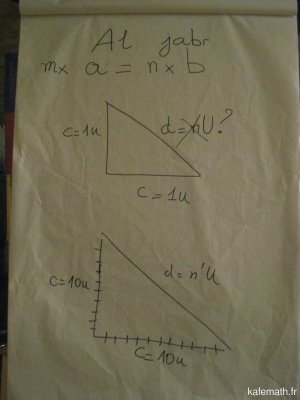 Al jabr
m× a = n × b
c=1u
d=nU?
c=1u
c=10u
d=n'U
c=10u
kafemath.fr